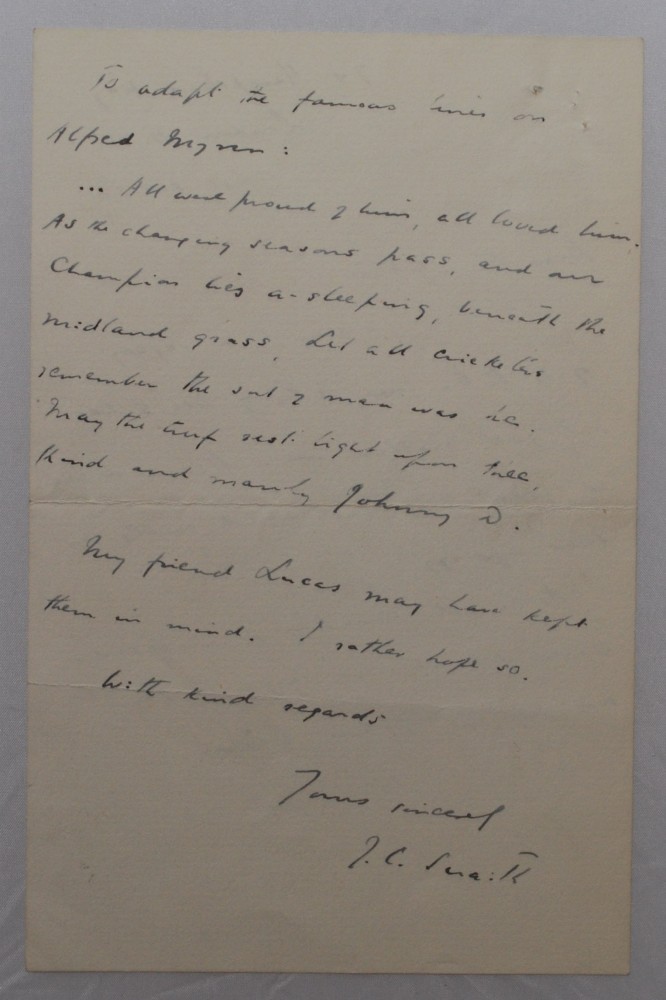 To adapt the famous lines on
Alfred Mynn:
... All were proud of him, all loved him.
As the changing seasons pass, and our
Champion lies a-sleeping, beneath the
midland grass, Let all cricketers
remember the sort of man was he.
May the turf rest light upon thee,
Kind and manly Johnny D.
My friend Lucas may have kept
them in mind. I rather hope so.
With kind regards
Yours sincerely
J. C. Smith